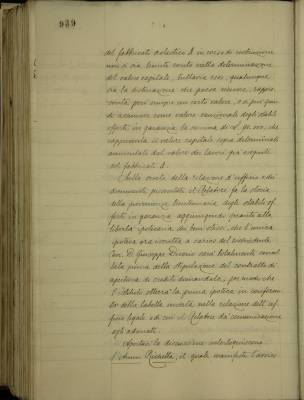 939
del fabbricato scolastico A in corso di costruzione
non si sia tenuto conto nella determinazione
del valore capitale, tuttavia esso, qualunque
sia la destinazione che possa ricevere, rappre-
senta pur sempre un certo valore, e si può quin-
di assumere come valore cauzionale degli stabili
offerti in garanzia la somma di L.
rappresenta il valore capitale sopra determinato
aumentato del valore dei lavori già eseguiti
del fabbricato A.
Sulla scorta della relazione d'ufficio e dei
documenti presentati il Relatore fa la storia
della provenienza trentennaria degli stabili of-
ferti in garanzia aggiungendo quanto alla
libertà ipotecaria dei beni stessi, che l'unica
ipoteca ora iscritta a carico del richiedente
Cav. D. Giuseppe sarà totalmente cancel-
lata prima della stipulazione del contratto di
apertura di credito domandata, per modo che
l'Istituto otterrà la prima ipoteca in conformi-
tà della tabella inserta nella relazione dell'uf-
ficio legale e di cui il Relatore dà comunicazione
agli adunati.
Apertasi la discussione interloquiscono:
l'Amm. Richetta, il quale manifesta l'avviso